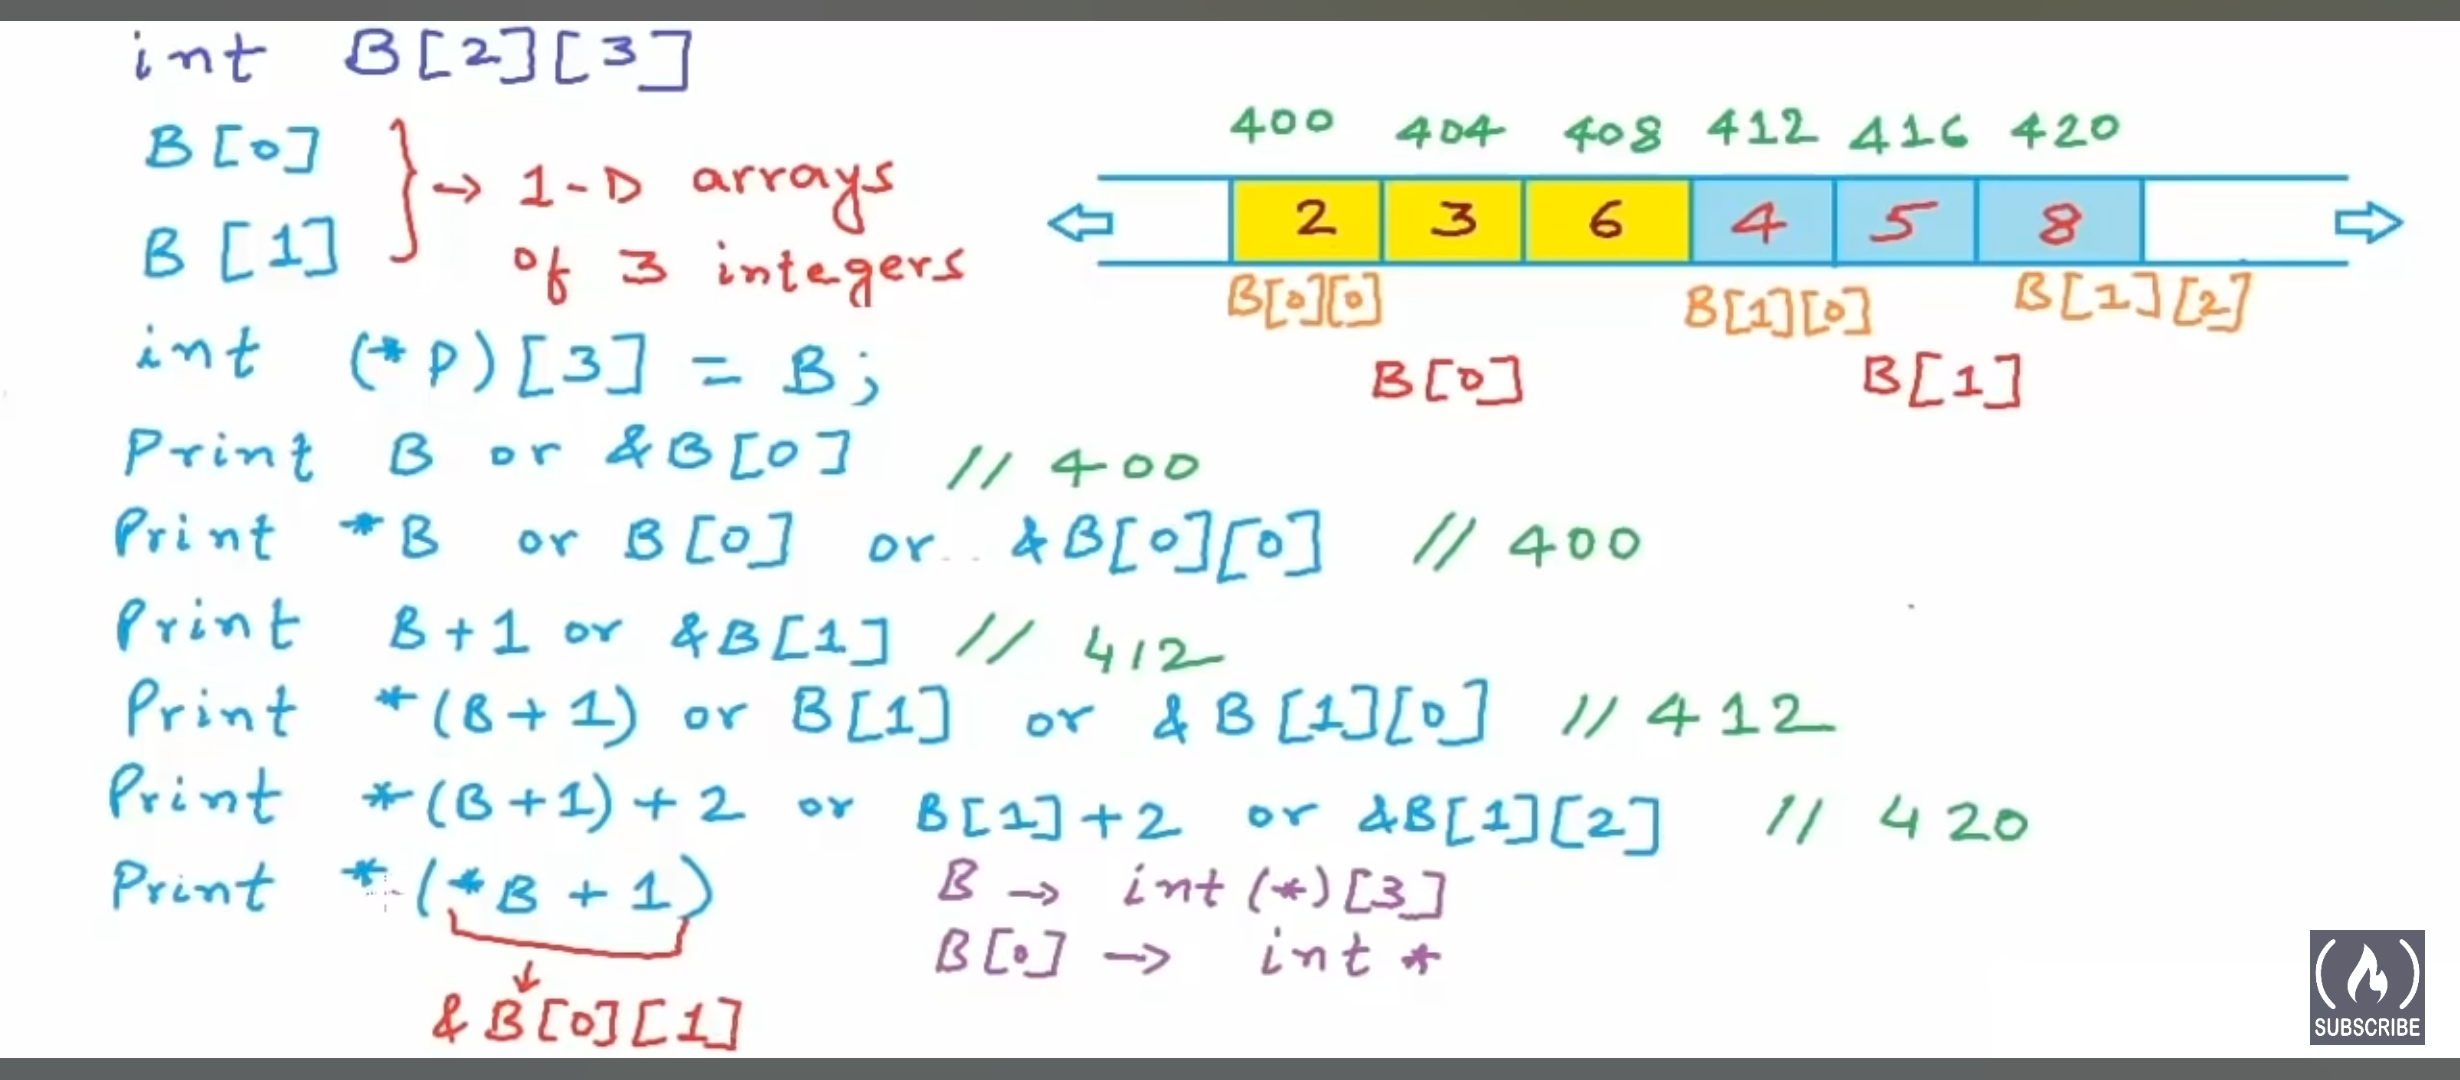 int B[2][3]
B[0]
B[1]
} → 1-D arrays
of 3 integers
400 404 408 412 416 420
2 3 6 4 5 8
B[0][0] B[1][0] B[1][2]
B[0] B[1]
int (*P)[3] = B;
Print B or &B[0] // 400
Print *B or B[0] or &B[0][0] // 400
Print B+1 or &B[1] // 412
Print *(B+1) or B[1] or &B[1][0] // 412
Print *(B+1)+2 or B[1]+2 or &B[1][2] // 420
Print *(*B+1)
&B[0][1]
B → int(*)[3]
B[0] → int *
SUBSCRIBE